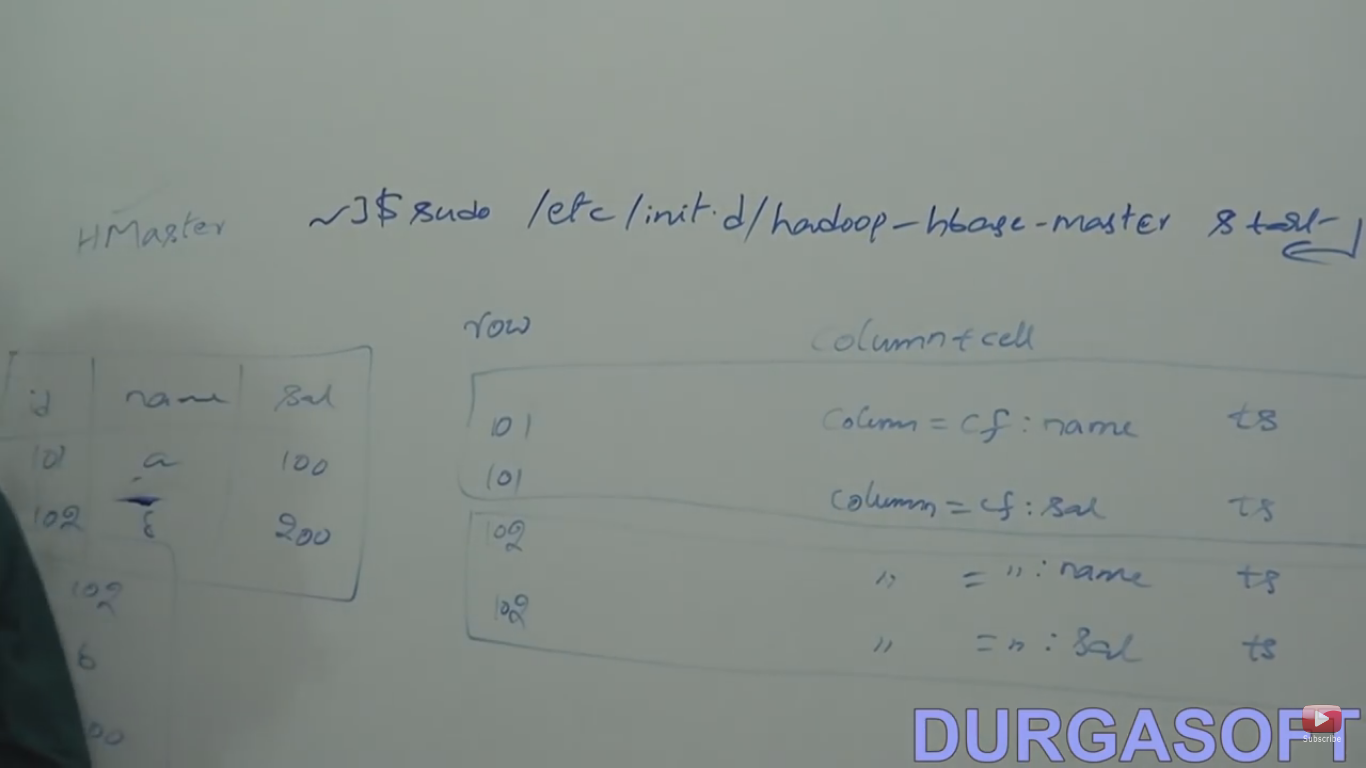 HMaster ~]$ sudo /etc/init.d/hadoop-hbase-master start
row column+cell
id name sal
101 a 100
102 200
102
b
00
101 column = cf : name ts
101 column = cf : sal ts
102 " = " : name ts
102 " = " : sal ts
DURGASOFT
Subscribe